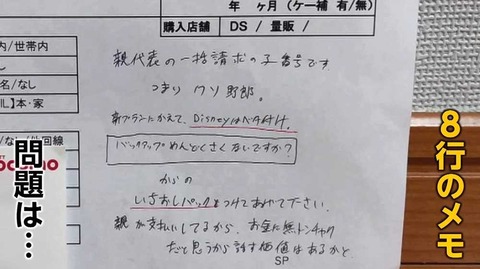 年 ヶ月 (ケー補 有/無)
購入店舗 DS / 量販 /
内/世帯内
名/なし
IL】本・家
なし/外回線
親代表の一括請求の子番号です
つまり クソ野郎。
新プランにかえて、DisneyはベタGAH.
バックアップめんどくさくないですか?
からの
いちおしパックをつけてあげて下さい。
親が支払いしてるから、お金に無トンチャク
だと思うから話す価値はあるかと
SP
8行のメモ
問題は…